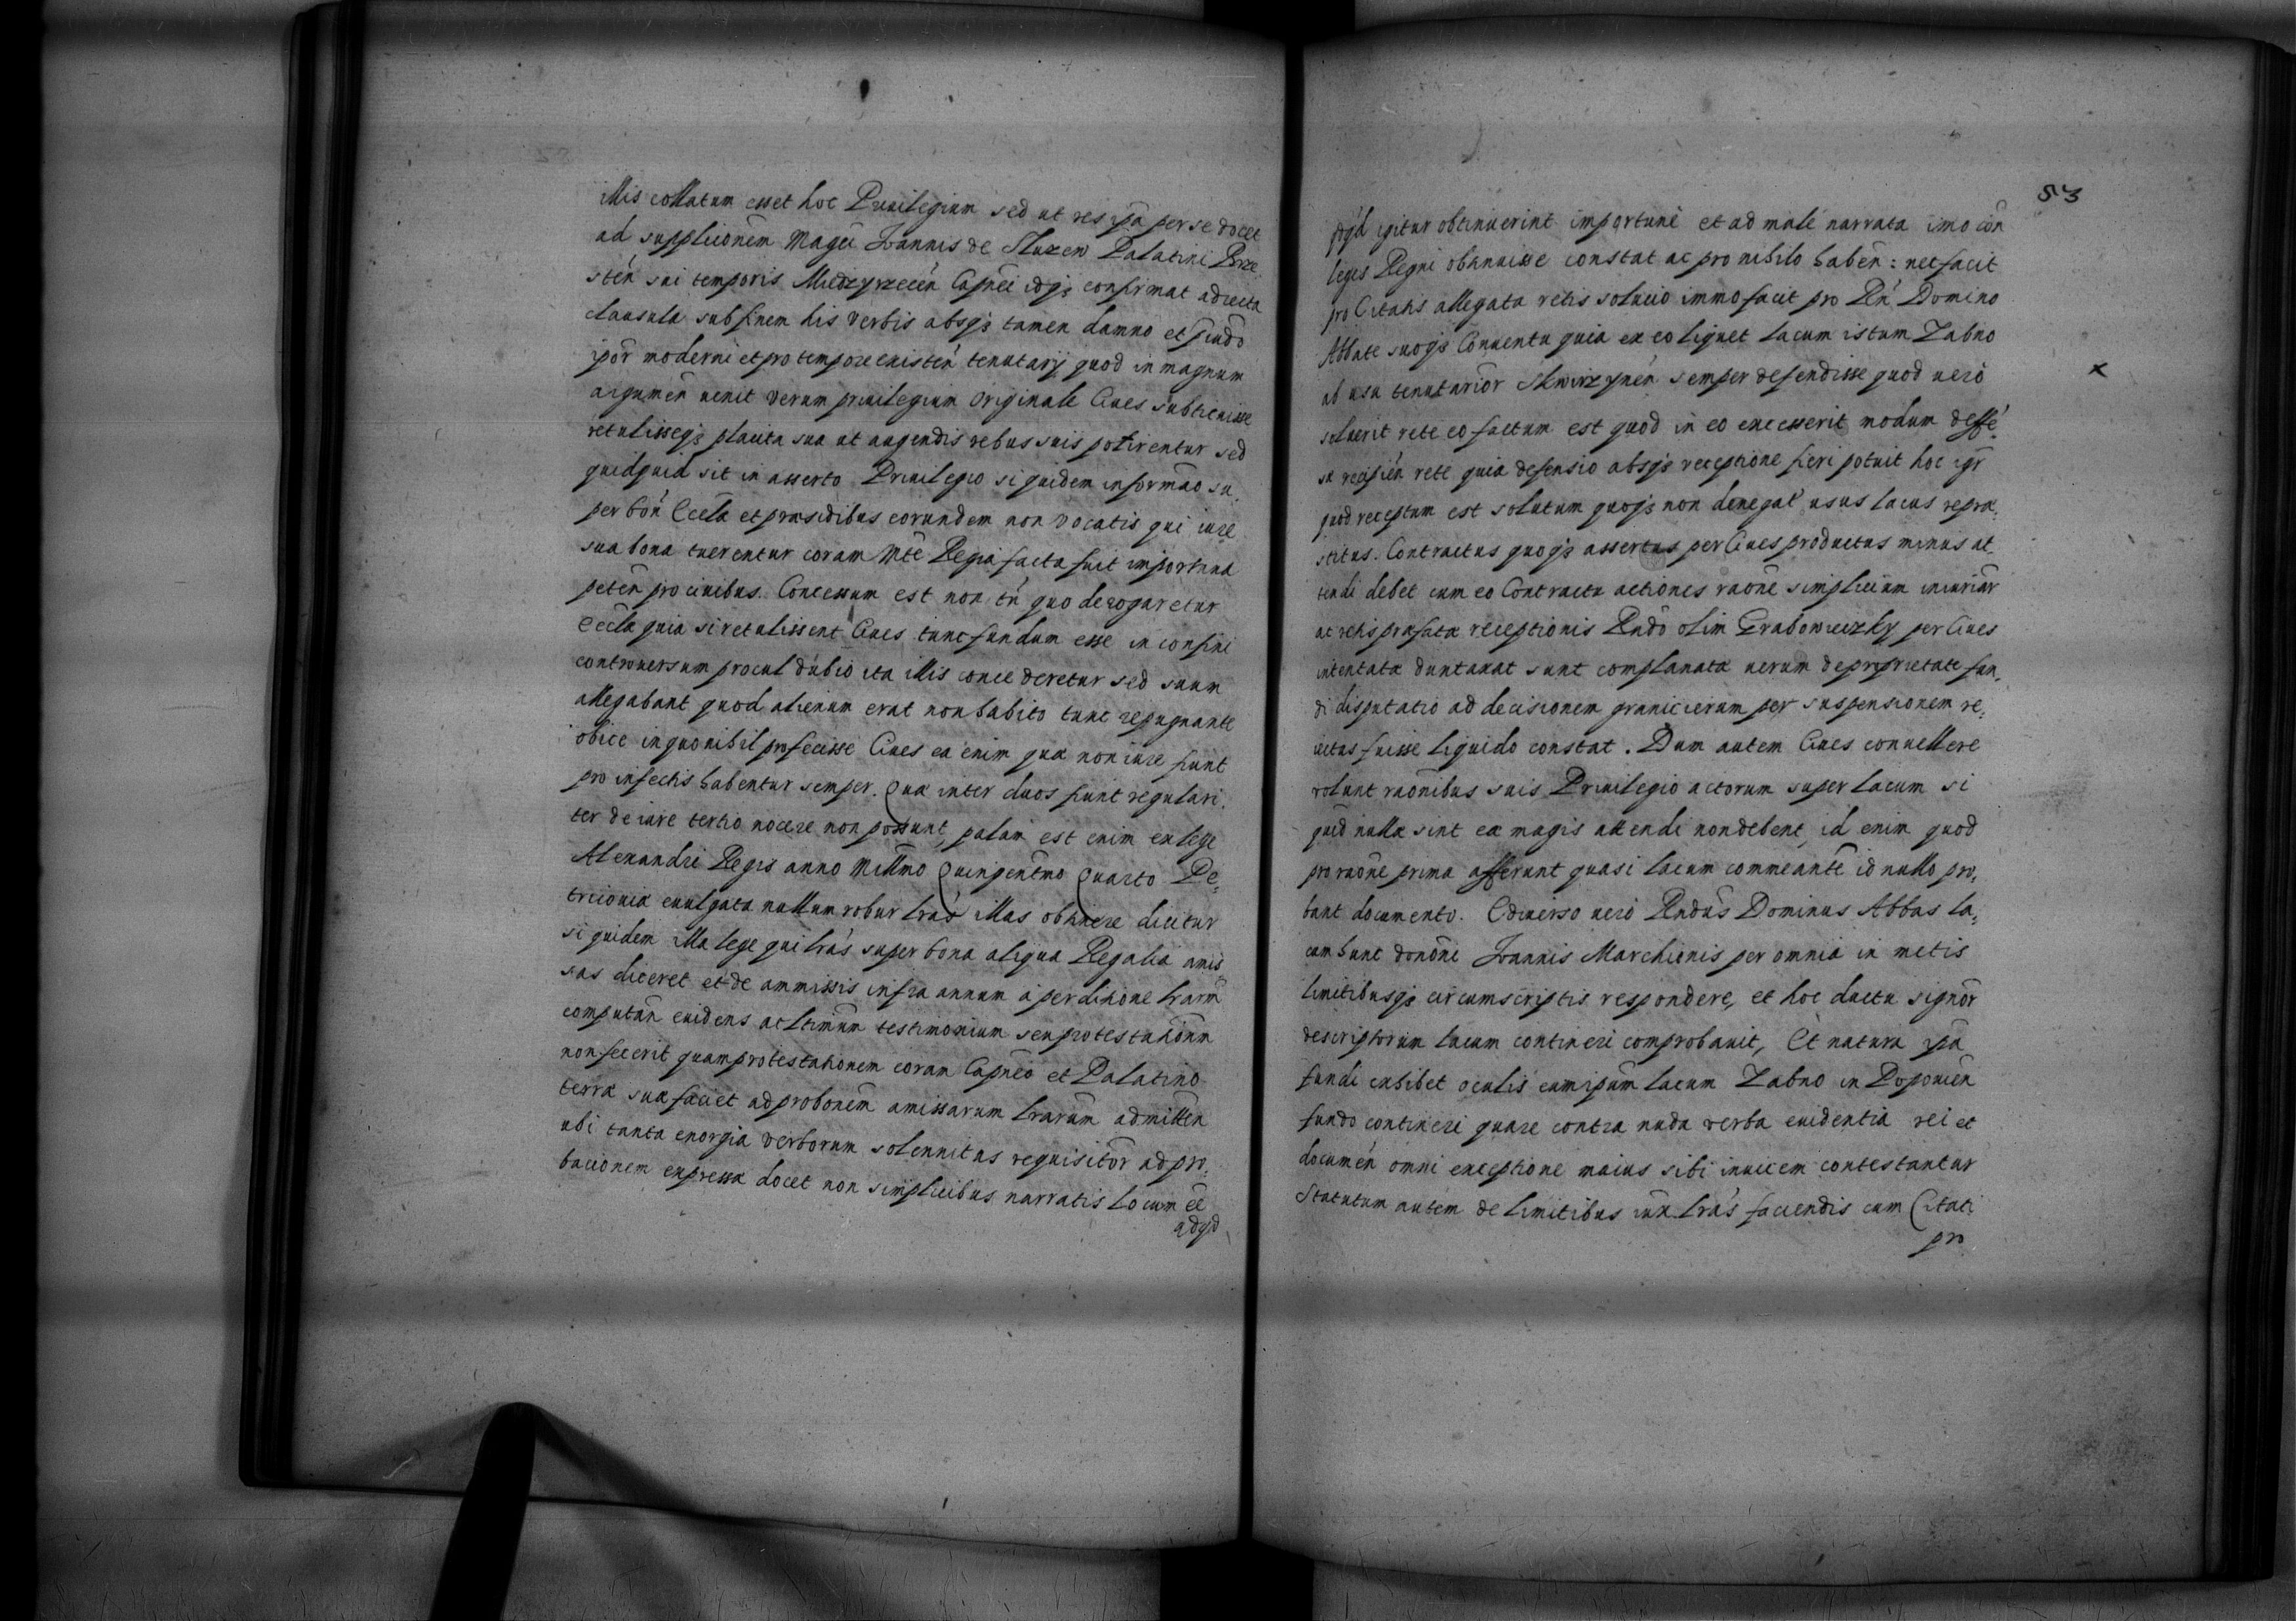 illis collatum esset hoc Priuilegium sed ut res ipa per se docet
ad supplicõnem Magci Joannis de Sluzew Palatini Brze
stén sui temporis Miedzyrzecén Capnei idqз confirmat adiecta
clausula sub finem his verbis absqз tamen damno et piudo
ipor moderni et pro tempore existén tenutarij quod in magnum
argumén uenit verum priuilegium originale Ciues subticuisse
retulisseqз placita sua ut augendis rebus suis potirentur sed
quidquid sit in asserto Priuilegio siquidem informao su,
per bón Eccla et præsidibus eorundem non vocatis qui iure
sua bona tuerentur coram Mte Regia facta fuit importuna
petén pro ciuibus. Concessum est non tń quo derogaretur
Eccla quia si retulissent Ciues tunc fundum esse in confini
controuersum procul dubio ita illis concederetur sed suum
allegabant quod alienum erat non habito tunc repugnante
obice in quo nihil profecisse Ciues ea enim quæ non iure fiunt
pro infectis habentur semper. Quæ inter duos fiunt regulari,
ter de iure tertio nocere non possunt, palam est enim ex lege
Alexandri Regis anno Millmo Quingentmo Quarto Pe,
tricouiæ euulgata nullum robur lrás illas obtinere dicitur
siquidem illa lege qui lrás super bona aliqua Regalia amis
sas diceret et de ammissis infra annum á perditione lrarm
compután euidens ac ltimum testimonium seu protestationm
non fecerit quam protestationem coram Capneo et Palatino
terræ suæ faciet ad probonem amissarum lrarum admitten
ubi tanta energia verborum solennitas requisitor ad pro,
bacionem expressa docet non simplicibus narratis locum ee
adqd
53
adqd igitur obtinuerint importunè et ad malè narrata imo con
leges Regni obtinuisse constat ac pro nihilo habén: nec facit
pro Citatis allegata retis solucio immo facit pro Rń Domino
Abbate suoqз Conuentu quia ex eo liquet lacum istum Zabno
ab usu tenutarior Skwirzynén semper defendisse quod uerò
x
soluerit rete eo factum est quod in eo excesserit modum deffé,
sæ recipién rete quia defensio absqз receptione fieri potuit hoc igr
quod receptum est solutum quoqз non denegat usus lacus repræ,
stitus. Contractus quoqз assertus per Ciues productus minus at
tendi debet cum eo Contractu actiones raone simplicium iniuriar
ac retis præfatæ receptionis Rndo olim Grabowieczky per Ciues
intentatæ duntaxat sunt complanatæ uerum de proprietate fun,
di disputatio ad decisionem granicierum per suspensionem re,
iectas fuisse liquido constat. Dum autem Ciues conuellere
volunt raonibus suis Priuilegio actorum super lacum si
quid nullæ sint ea magis attendi non debent, id enim quod
pro raone prima afferunt quasi lacum commeante id nullo pro,
bant documento. Ediuerso uerò Rndus Dominus Abbas la,
cum hunc donõni Joannis Marchionis per omnia in metis
limitibusqз circumscriptis respondere, et hoc ductu signor
descriptorum lacum contineri comprobauit, Et natura ipa
fundi exhibet oculis eum ipum lacum Zabno in Popowien
fundo contineri quare contra nuda verba euidentia rei et
documén omni exceptione maius sibi inuicem contestantur
Statutum autem de limitibus iux lrás faciendis cum Citati
pro